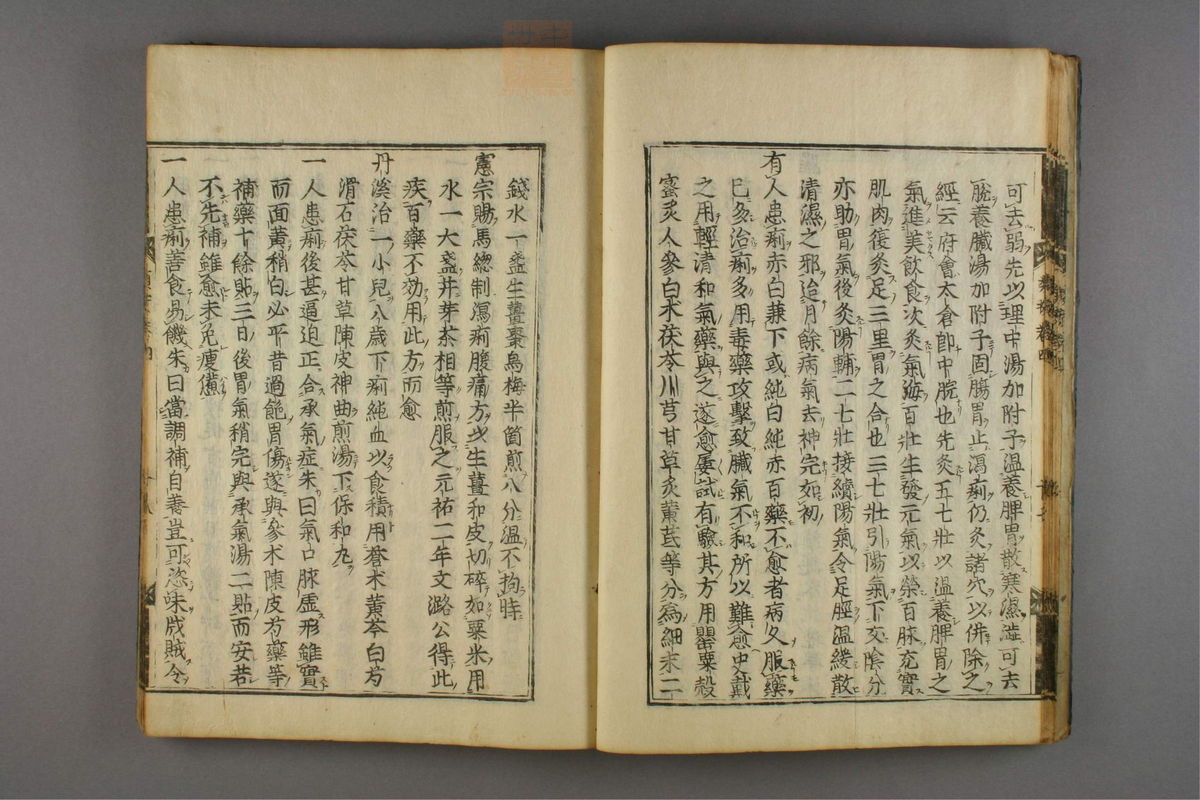 可去弱先以理中湯加附子溫養脾胃散寒濕澁可去
脫養臟湯加附子固腸胃止瀉痢仍灸諸穴以倂除之
經云府會太倉卽中脘也先灸五七壯以溫養脾胃之
氣進美飮食次灸氣海百壯生發元氣以榮百脉充實
肌肉復灸足三里胃之合也三七壯引陽氣下交陰分
亦助胃氣後灸陽輔二七壯接續陽氣令足脛溫緩散
清濕之邪迨月餘病氣去神完如初
有人患痢赤白兼下或純白純赤百藥不愈者病久服藥
已多治痢多用毒藥攻擊致臟氣不和所以難愈史戴
之用輕清和氣藥與之遂愈屡試有驗其方用罌粟殼
蜜炙人參白术茯苓川芎甘草炙黄芪等分爲細末二
錢水一盞生薑棗烏梅半箇煎八分溫不拘時
憲宗賜馬總制瀉痢腹痛方以生薑和皮切碎如粟米用
水一大盞井芽茶相等煎服之元祐二年文潞公得此
疾百藥不効用此方而愈
丹溪治一小兒八歲下痢純血以食積用蒼术黄芩白芍
滑石茯苓甘草陳皮神曲煎湯下保和丸
一人患痢後甚逼迫正合承氣症朱曰氣口脉虛形雖實
而面黄稍白必平昔過飽胃傷遂與參术陳皮芍藥等
補藥十餘貼三日後胃氣稍完與承氣湯二貼而安若
不先補雖愈未免瘦憊
一人患痢善食易饑朱曰當調補自養豈可恣味戕賊令